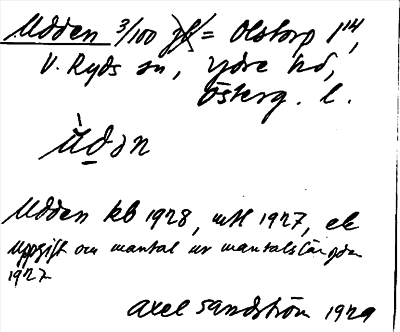 Udden 3/100 = Olstorp 1¹⁄⁴,
V. Ryds sn, Ydre hd,
Österg. l.
ùdən
Udden kb 1928, mtl 1927, ek
Uppgift om mantal ur mantalslängden
1927
Axel Sandström 1929